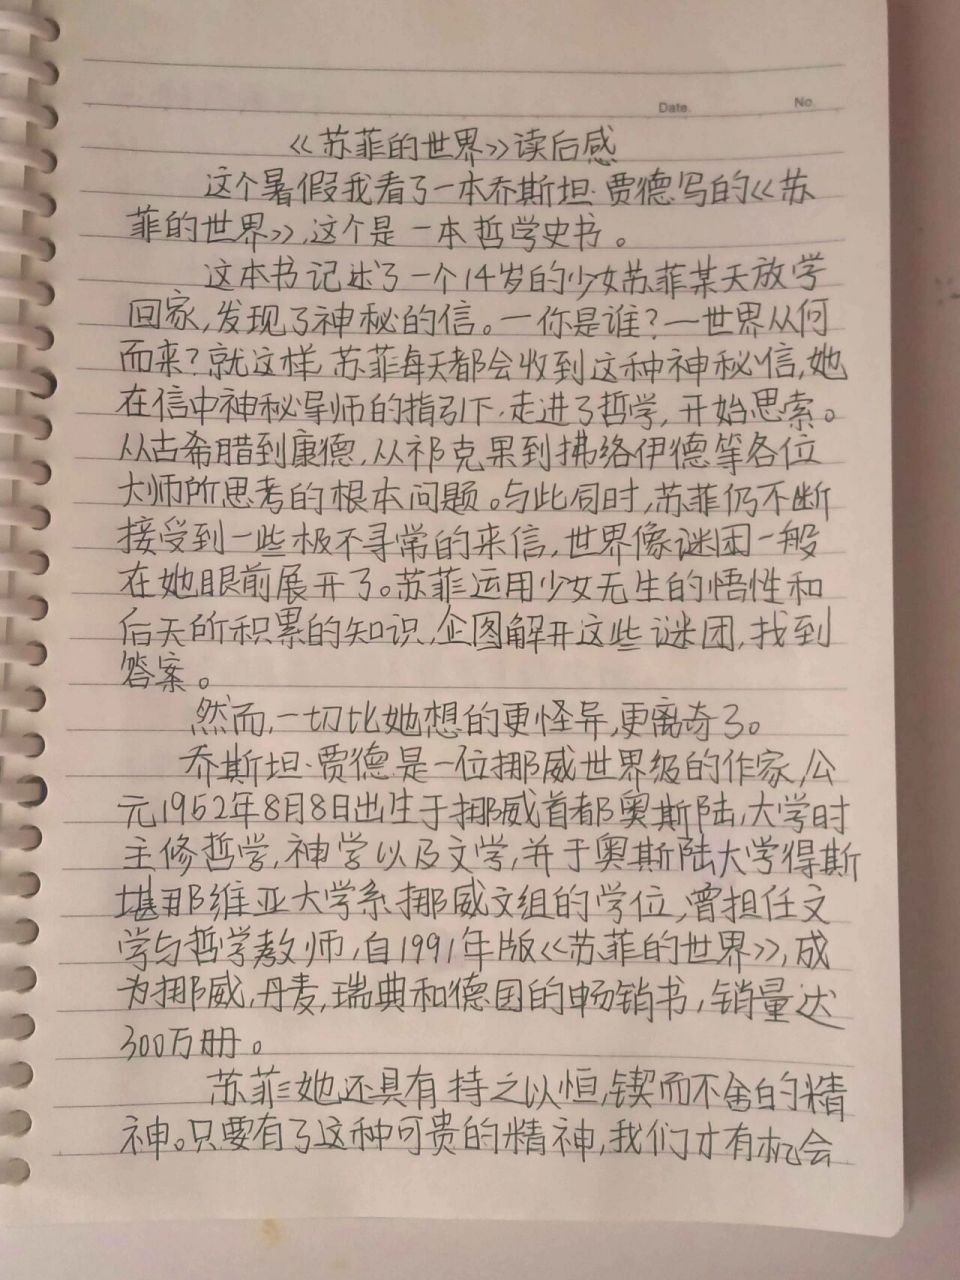 Date.
No.
《苏菲的世界》读后感
这个暑假我看了一本乔斯坦·贾德写的《苏
菲的世界》,这个是一本哲学史书。
这本书记述了一个14岁的少女苏菲某天放学
回家,发现了神秘的信。—你是谁?—世界从何
而来?就这样,苏菲每天都会收到这种神秘信,她
在信中神秘导师的指引下,走进了哲学,开始思索。
从古希腊到康德,从祁克果到拂络伊德等各位
大师所思考的根本问题。与此同时,苏菲仍不断
接受到一些极不寻常的来信,世界像谜团一般
在她眼前展开了。苏菲运用少女无生的悟性和
后天所积累的知识,企图解开这些谜团,找到
答案。
然而,一切比她想的更怪异,更离奇了。
乔斯坦·贾德是一位挪威世界级的作家,公
元1952年8月8日出生于挪威首都奥斯陆,大学时
主修哲学,神学以及文学,并于奥斯陆大学得斯
堪那维亚大学系挪威文组的学位,曾担任文
学与哲学教师,自1991年版《苏菲的世界》,成
为挪威,丹麦,瑞典和德国的畅销书,销量达
300万册。
苏菲她还具有持之以恒,锲而不舍的精
神。只要有了这种可贵的精神,我们才有机会